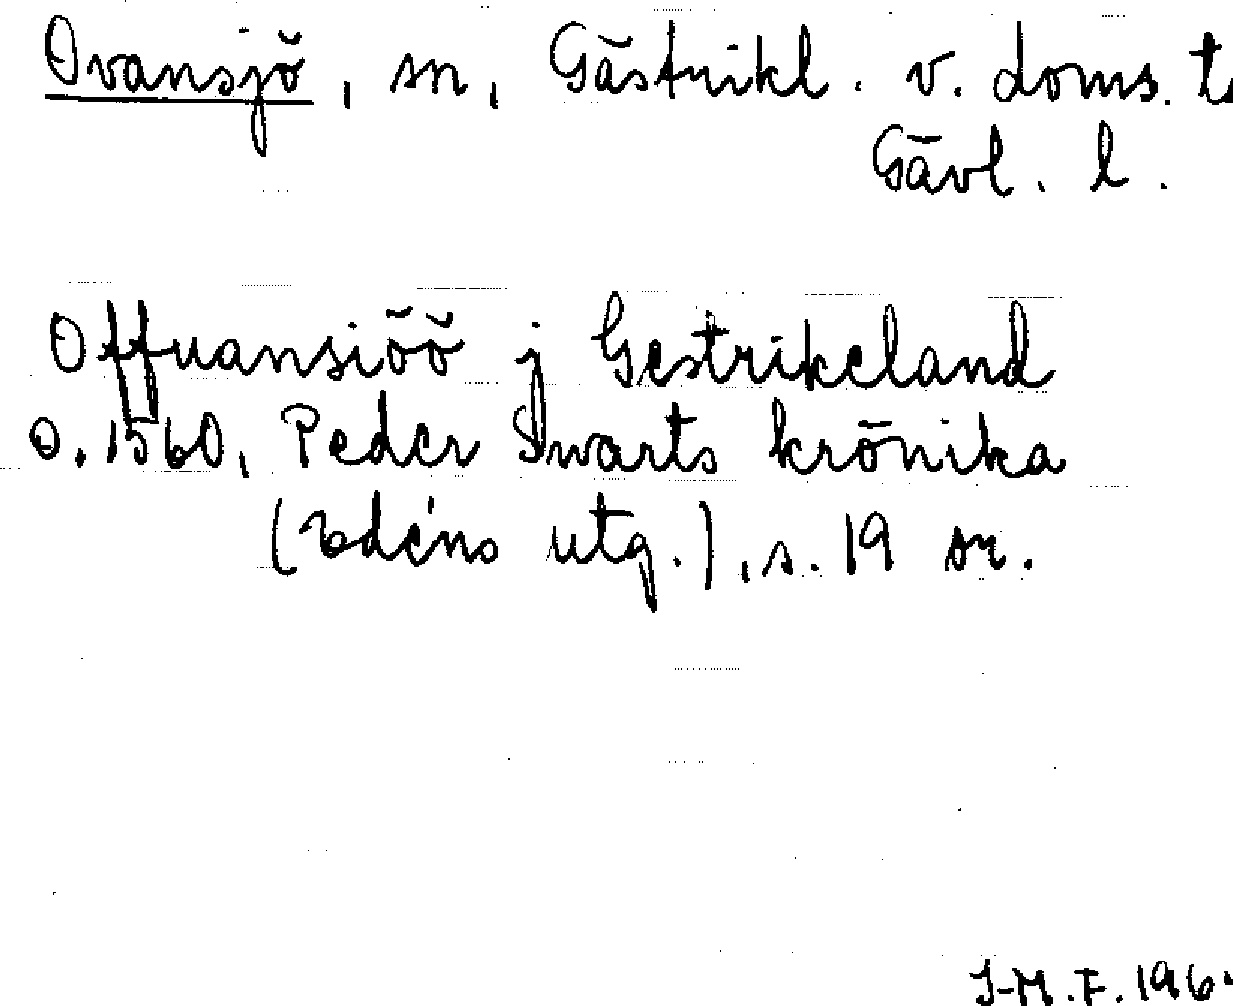 Ovansjö, sn, Gästrikl. v. doms. t
Gävl. l.
Offuansiöö j Gestrikeland
o. 1560, Peder Swarts krönika
(Edéns utg.), s. 19 sn.
J-M.F. 196